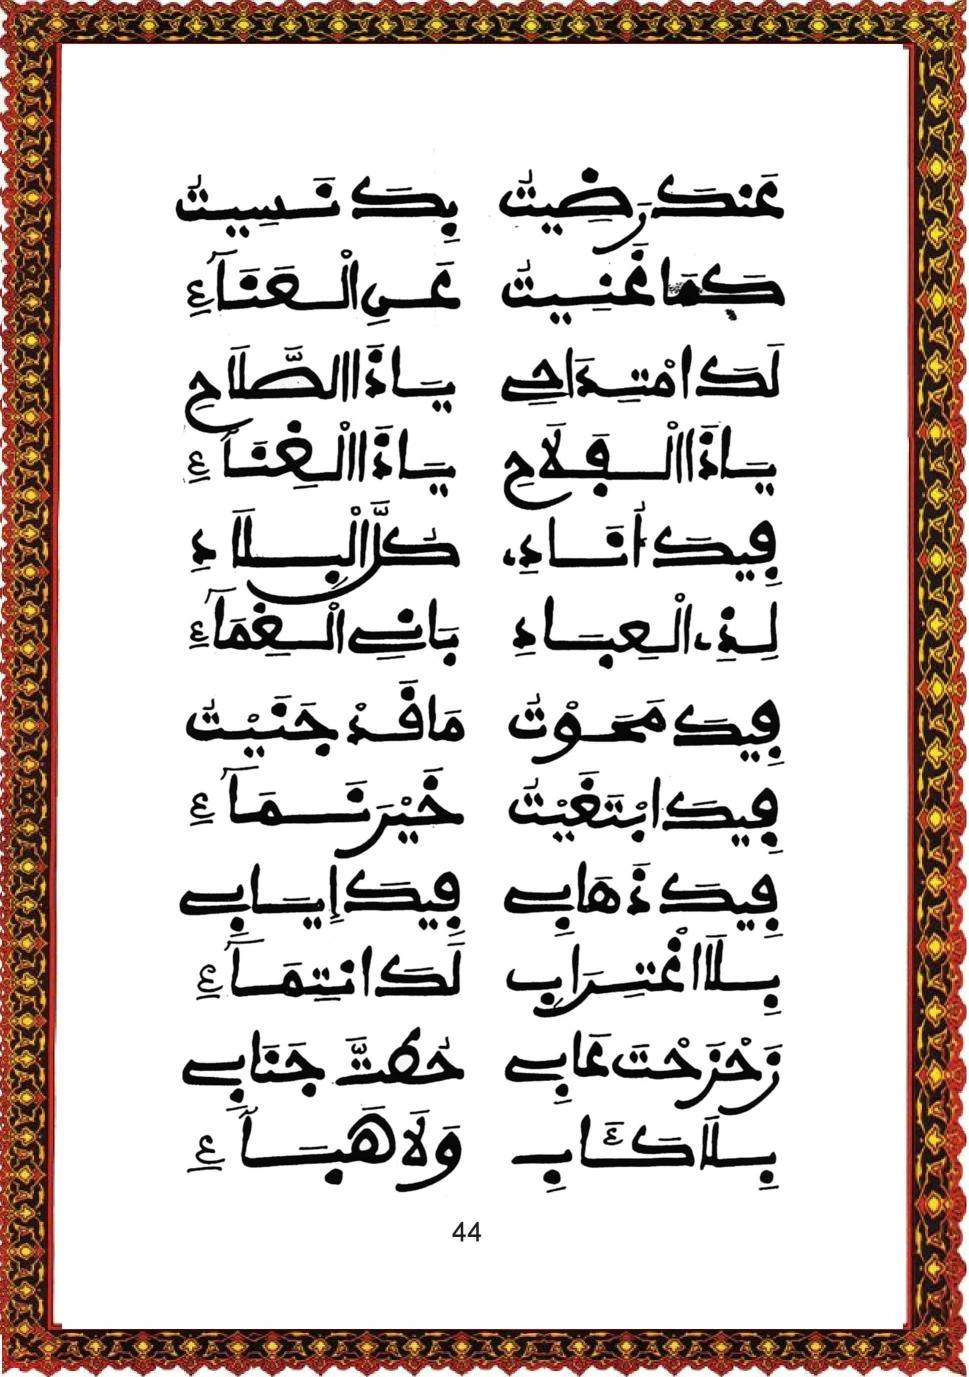 عَنكَ رَضِيتُ بِكَ نَسِيتُ
كَمَا غَنِيتُ عَنِ الْعَنَآءِ
لَكَ امْتِدَاحِي يَا ذَا الصَّلَاحِ
يَا ذَا الْفَلَاحِ يَا ذَا الْغِنَآءِ
فِيكَ أُنَادِي كُلَّ الْبِلَادِ
لِذِي الْعِبَادِ بَانِي الْغِمَآءِ
فِيكَ مَحَوْتُ مَا قَدْ جَنَيْتُ
فِيكَ ابْتَغَيْتُ خَيْرَ نَمَآءِ
فِيكَ ذَهَابِي فِيكَ إِيَابِي
بِلَا اغْتِرَابِ لَكَ انتِمَآءِ
زَحْزَحْتَ عَابِي حُطتَّ جَنَابِي
بِلَا كَئَابِ وَلَا هَبَآءِ
44